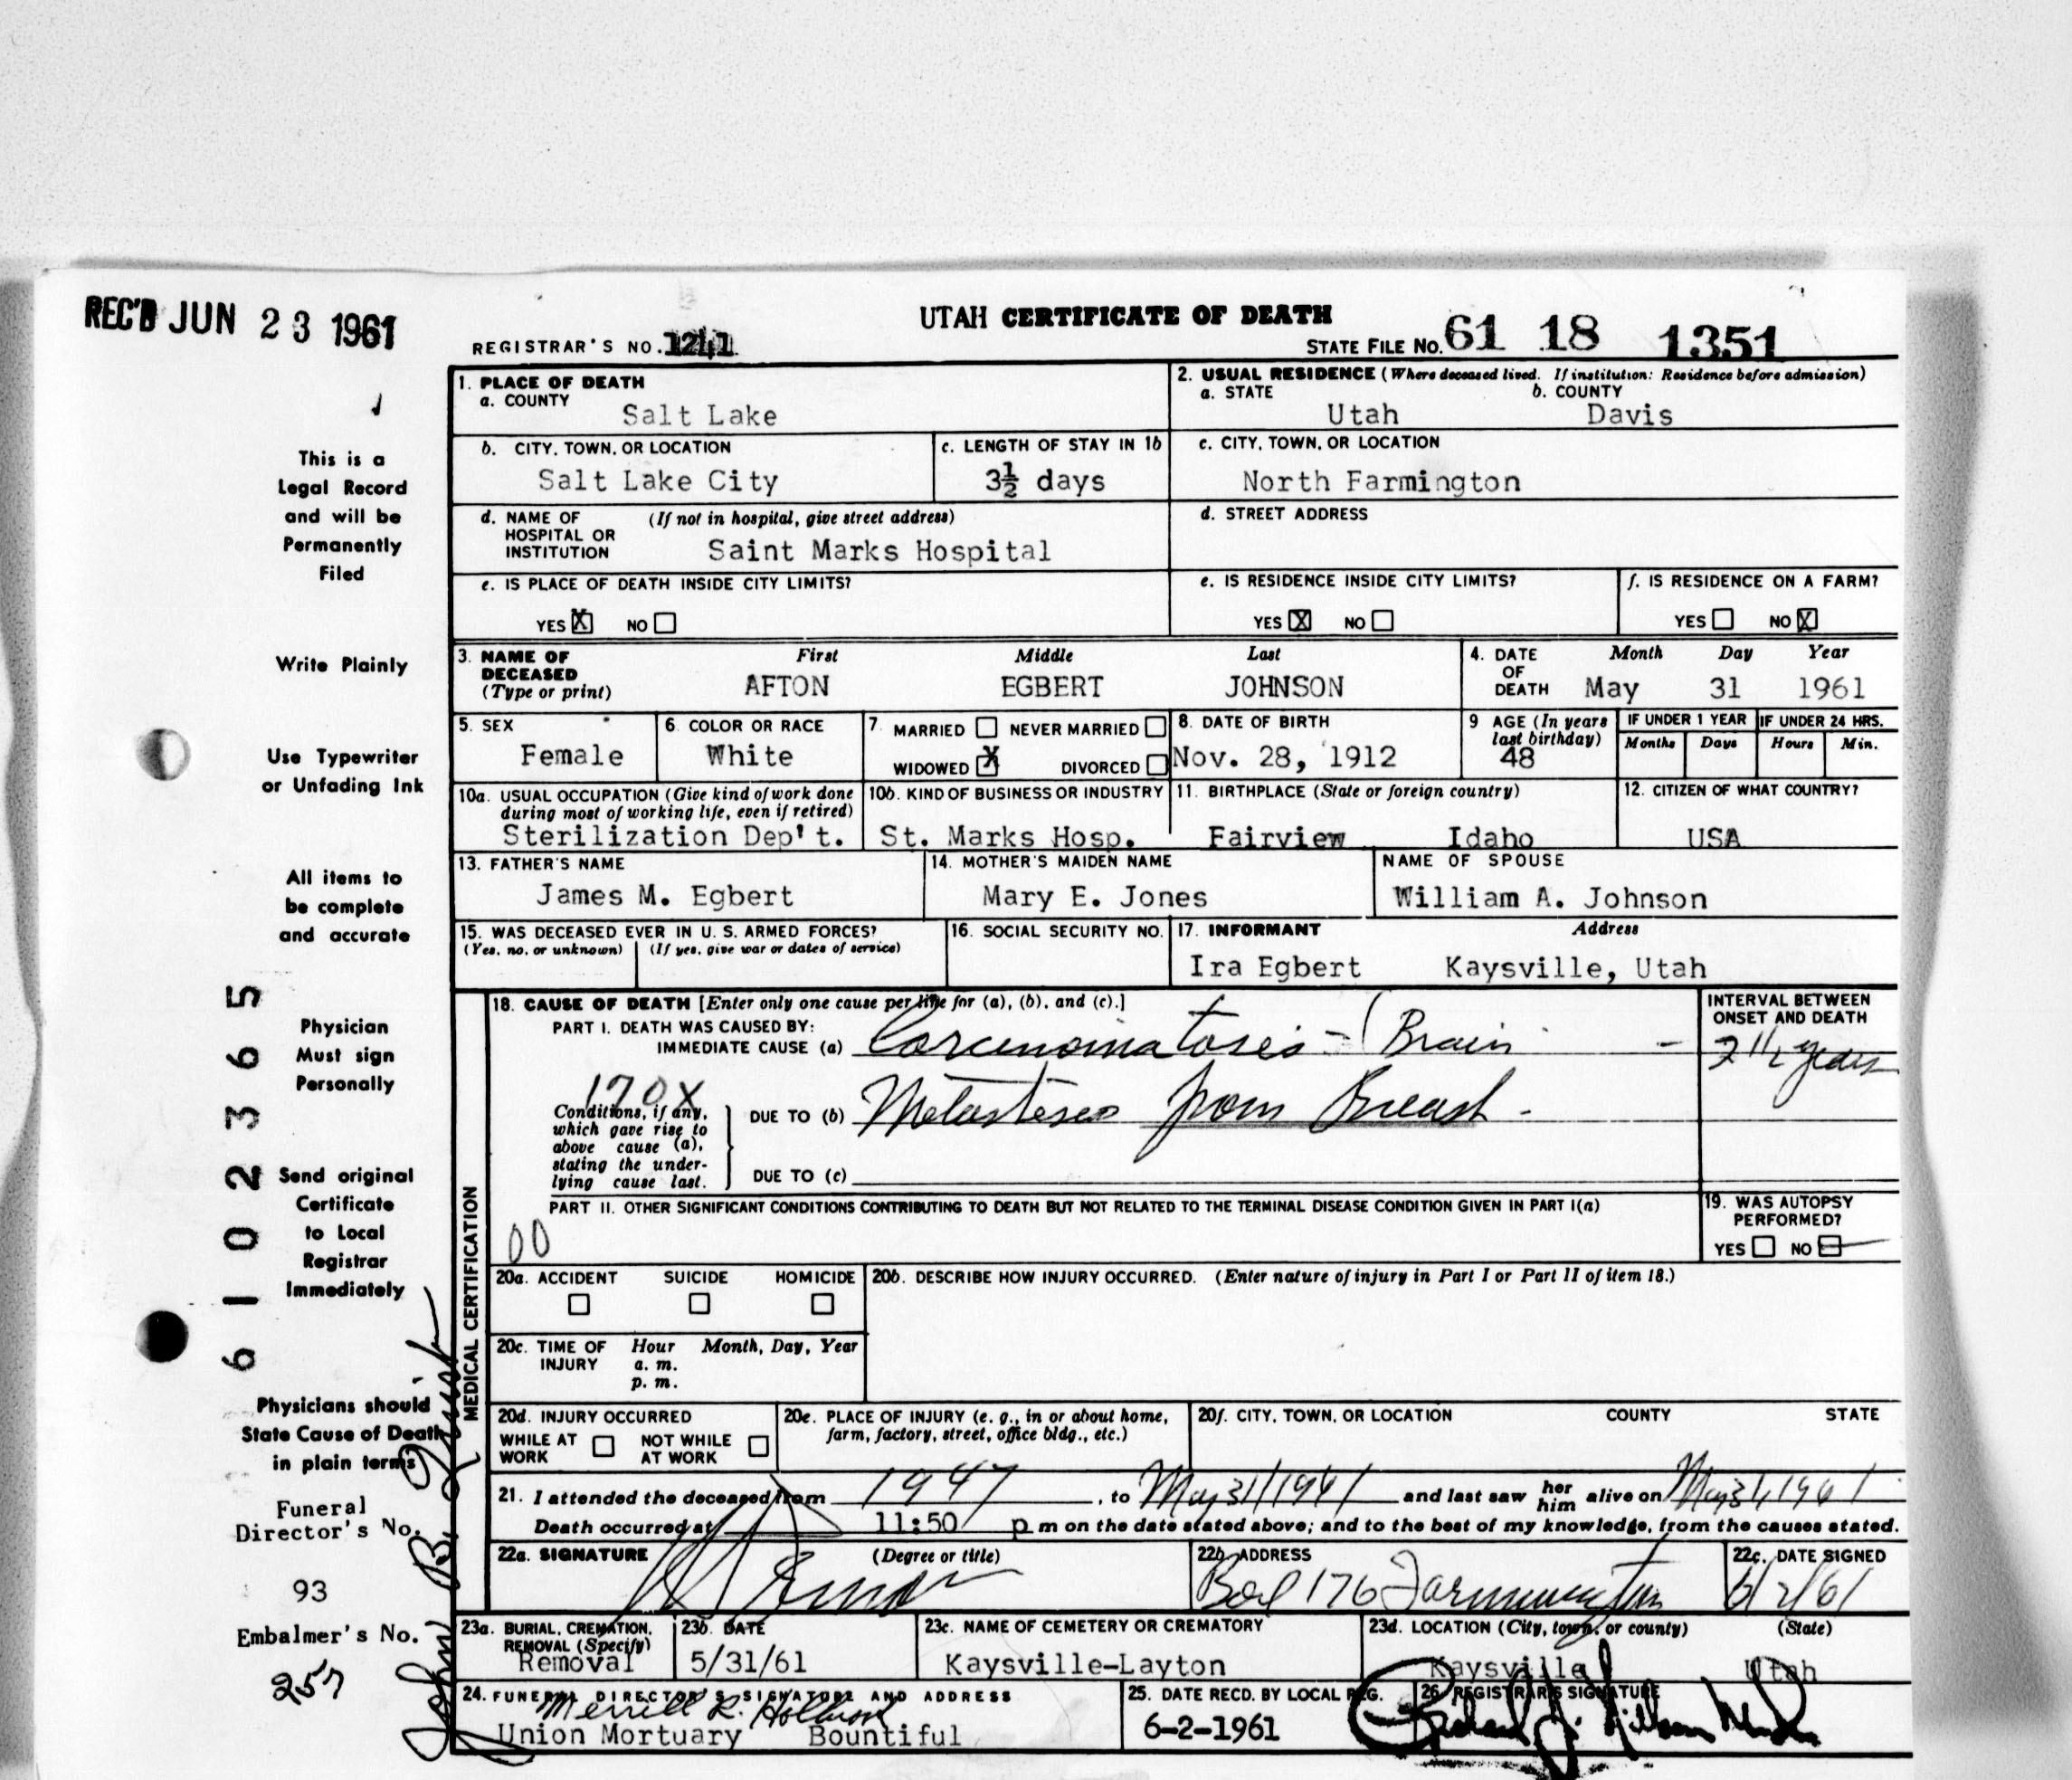 REC'D JUN 23 1961
UTAH CERTIFICATE OF DEATH
REGISTRAR'S NO. 1241
STATE FILE NO. 61 18 1351
This is a
Legal Record
and will be
Permanently
Filed
Write Plainly
Use Typewriter
or Unfading Ink
All items to
be complete
and accurate
Physician
Must sign
Personally
Send original
Certificate
to Local
Registrar
Immediately
Physicians should
State Cause of Death
in plain terms
Funeral
Director's No.
93
Embalmer's No.
257
61 02365
John B.
1. PLACE OF DEATH
a. COUNTY
Salt Lake
2. USUAL RESIDENCE (Where deceased lived. If institution: Residence before admission)
a. STATE b. COUNTY
Utah Davis
b. CITY, TOWN, OR LOCATION
Salt Lake City
c. LENGTH OF STAY IN 1b
3½ days
c. CITY, TOWN, OR LOCATION
North Farmington
d. NAME OF HOSPITAL OR INSTITUTION (If not in hospital, give street address)
Saint Marks Hospital
d. STREET ADDRESS
e. IS PLACE OF DEATH INSIDE CITY LIMITS?
YES X NO
e. IS RESIDENCE INSIDE CITY LIMITS?
YES X NO
f. IS RESIDENCE ON A FARM?
YES NO X
3. NAME OF DECEASED (Type or print) First Middle Last
AFTON EGBERT JOHNSON
4. DATE OF DEATH Month Day Year
May 31 1961
5. SEX
Female
6. COLOR OR RACE
White
7. MARRIED NEVER MARRIED
WIDOWED X DIVORCED
8. DATE OF BIRTH
Nov. 28, 1912
9 AGE (In years last birthday)
48
IF UNDER 1 YEAR IF UNDER 24 HRS.
Months Days Hours Min.
10a. USUAL OCCUPATION (Give kind of work done during most of working life, even if retired)
Sterilization Dep't.
10b. KIND OF BUSINESS OR INDUSTRY
St. Marks Hosp.
11. BIRTHPLACE (State or foreign country)
Fairview Idaho
12. CITIZEN OF WHAT COUNTRY?
USA
13. FATHER'S NAME
James M. Egbert
14. MOTHER'S MAIDEN NAME
Mary E. Jones
NAME OF SPOUSE
William A. Johnson
15. WAS DECEASED EVER IN U. S. ARMED FORCES?
(Yes, no, or unknown) (If yes, give war or dates of service)
16. SOCIAL SECURITY NO.
17. INFORMANT Address
Ira Egbert Kaysville, Utah
MEDICAL CERTIFICATION
18. CAUSE OF DEATH [Enter only one cause per line for (a), (b), and (c).]
PART I. DEATH WAS CAUSED BY:
IMMEDIATE CAUSE (a) Carcinomatosis - (Brain -
INTERVAL BETWEEN ONSET AND DEATH
2 1/2 years
170X
Conditions, if any, which gave rise to above cause (a), stating the underlying cause last.
DUE TO (b) Metastases from Breast -
DUE TO (c)
PART II. OTHER SIGNIFICANT CONDITIONS CONTRIBUTING TO DEATH BUT NOT RELATED TO THE TERMINAL DISEASE CONDITION GIVEN IN PART I(a)
00
19. WAS AUTOPSY PERFORMED?
YES NO
20a. ACCIDENT SUICIDE HOMICIDE
20b. DESCRIBE HOW INJURY OCCURRED. (Enter nature of injury in Part I or Part II of item 18.)
20c. TIME OF INJURY Hour Month, Day, Year
a. m.
p. m.
20d. INJURY OCCURRED
WHILE AT WORK NOT WHILE AT WORK
20e. PLACE OF INJURY (e. g., in or about home, farm, factory, street, office bldg., etc.)
20f. CITY, TOWN, OR LOCATION COUNTY STATE
21. I attended the deceased from 1947, to May 31/1961 and last saw her him alive on May 31, 1961
Death occurred at 11:50 p m on the date stated above; and to the best of my knowledge, from the causes stated.
22a. SIGNATURE (Degree or title)
22b. ADDRESS
Box 176 Farmington
22c. DATE SIGNED
6/2/61
23a. BURIAL, CREMATION, REMOVAL (Specify)
Removal
23b. DATE
5/31/61
23c. NAME OF CEMETERY OR CREMATORY
Kaysville-Layton
23d. LOCATION (City, town, or county) (State)
Kaysville Utah
24. FUNERAL DIRECTOR'S SIGNATURE AND ADDRESS
Merrill R. Holbrook
Union Mortuary Bountiful
25. DATE RECD. BY LOCAL REG.
6-2-1961
26. REGISTRAR'S SIGNATURE